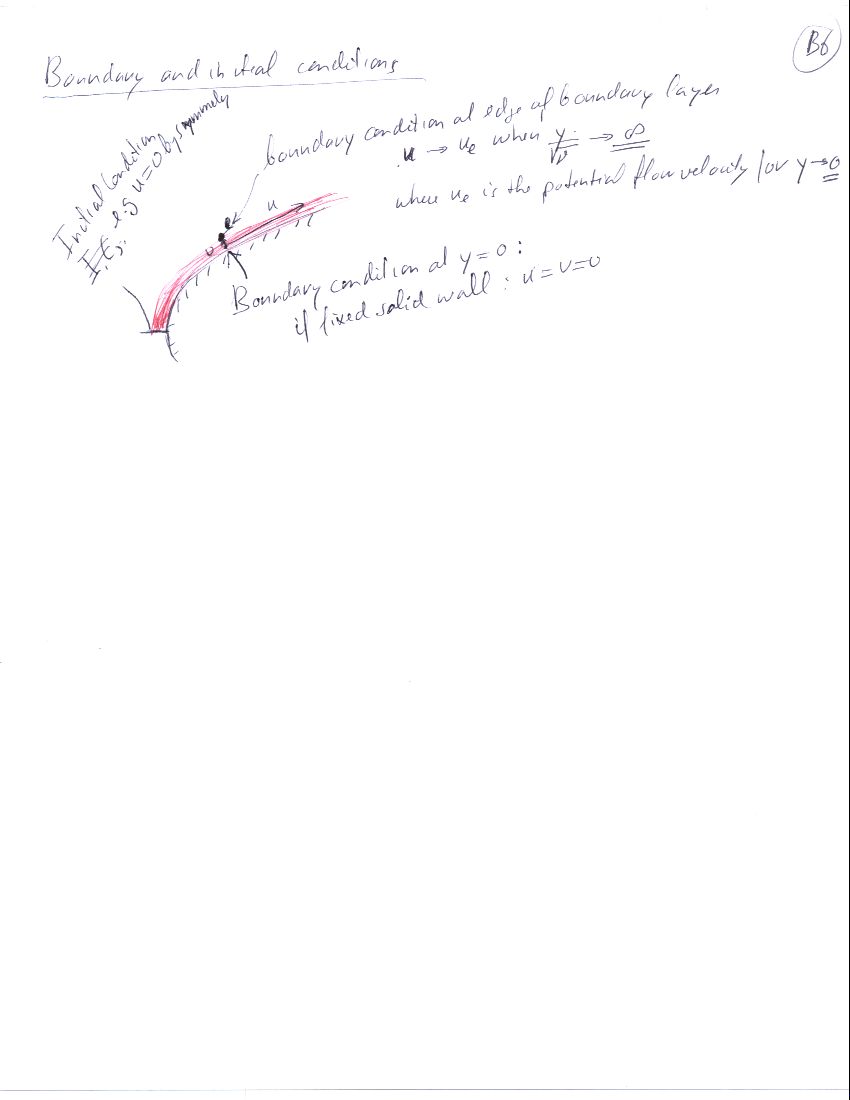 B6
Boundary and initial conditions
Initial Condition
I.C.: e.g u=0 by symmety
boundary condition at edge of boundary layer
u → ue when y/√ν → ∞
where ue is the potential flow velocity for y→0
e
u
0
Boundary condition at y=0 :
if fixed solid wall : u=v=0